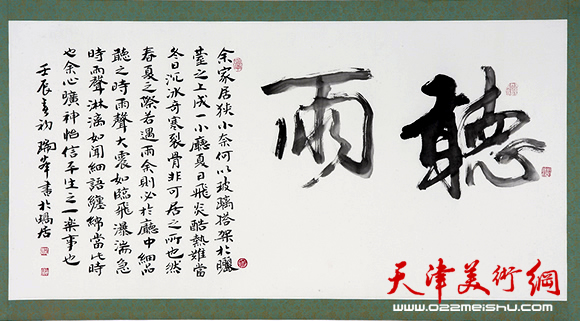 聽雨
余家居狹小奈何以玻璃搭架於曬
臺之上成一小廳夏日飛炎酷熱難當
冬日沉冰奇寒裂骨非可居之所也然
春夏之際若遇雨余則必於廳中細品
聽之時雨聲大震如臨飛瀑湍急
時雨聲淋漓如聞細語纏綿當此時
也余心曠神怡信平生之一樂事也
壬辰春初瑞峰書於蝸居
天津美術網
www.022meishu.com